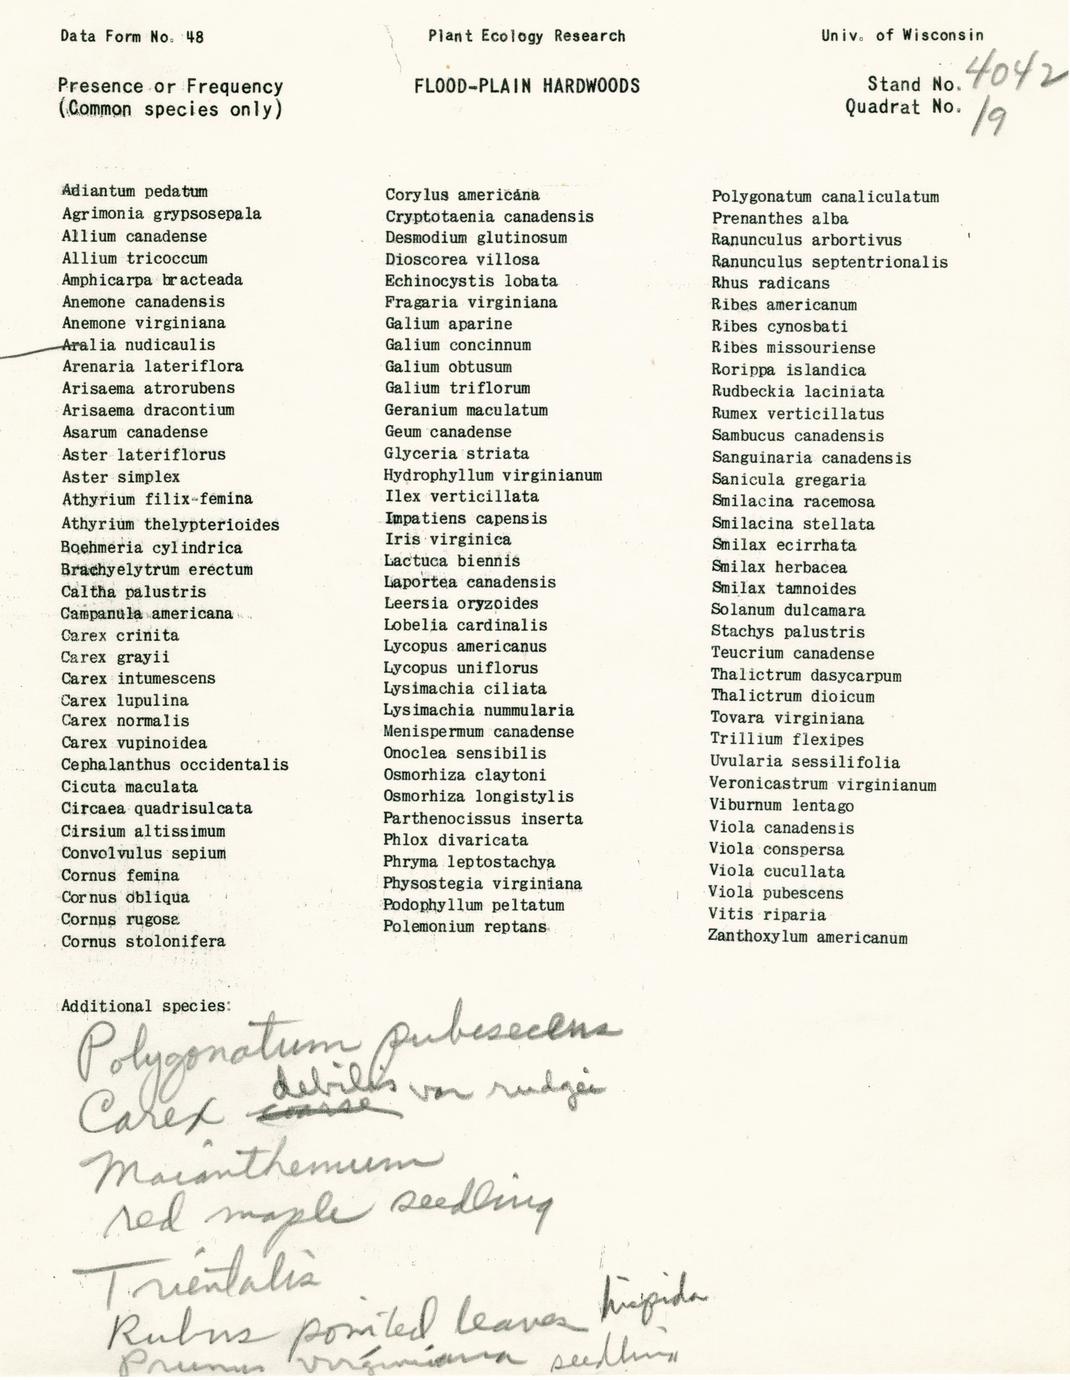 Data Form No. 48
Plant Ecology Research
Univ. of Wisconsin
Presence or Frequency
(Common species only)
FLOOD-PLAIN HARDWOODS
Stand No. 4042
Quadrat No. 19
Adiantum pedatum
Agrimonia grypsosepala
Allium canadense
Allium tricoccum
Amphicarpa bracteada
Anemone canadensis
Anemone virginiana
Aralia nudicaulis
Arenaria lateriflora
Arisaema atrorubens
Arisaema dracontium
Asarum canadense
Aster lateriflorus
Aster simplex
Athyrium filix-femina
Athyrium thelypterioides
Boehmeria cylindrica
Brachyelytrum erectum
Caltha palustris
Campanula americana
Carex crinita
Carex grayii
Carex intumescens
Carex lupulina
Carex normalis
Carex vupinoidea
Cephalanthus occidentalis
Cicuta maculata
Circaea quadrisulcata
Cirsium altissimum
Convolvulus sepium
Cornus femina
Cornus obliqua
Cornus rugosa
Cornus stolonifera
Corylus americana
Cryptotaenia canadensis
Desmodium glutinosum
Dioscorea villosa
Echinocystis lobata
Fragaria virginiana
Galium aparine
Galium concinnum
Galium obtusum
Galium triflorum
Geranium maculatum
Geum canadense
Glyceria striata
Hydrophyllum virginianum
Ilex verticillata
Impatiens capensis
Iris virginica
Lactuca biennis
Laportea canadensis
Leersia oryzoides
Lobelia cardinalis
Lycopus americanus
Lycopus uniflorus
Lysimachia ciliata
Lysimachia nummularia
Menispermum canadense
Onoclea sensibilis
Osmorhiza claytoni
Osmorhiza longistylis
Parthenocissus inserta
Phlox divaricata
Phryma leptostachya
Physostegia virginiana
Podophyllum peltatum
Polemonium reptans
Polygonatum canaliculatum
Prenanthes alba
Ranunculus arbortivus
Ranunculus septentrionalis
Rhus radicans
Ribes americanum
Ribes cynosbati
Ribes missouriense
Rorippa islandica
Rudbeckia laciniata
Rumex verticillatus
Sambucus canadensis
Sanguinaria canadensis
Sanicula gregaria
Smilacina racemosa
Smilacina stellata
Smilax ecirrhata
Smilax herbacea
Smilax tamnoides
Solanum dulcamara
Stachys palustris
Teucrium canadense
Thalictrum dasycarpum
Thalictrum dioicum
Tovara virginiana
Trillium flexipes
Uvularia sessilifolia
Veronicastrum virginianum
Viburnum lentago
Viola canadensis
Viola conspersa
Viola cucullata
Viola pubescens
Vitis riparia
Zanthoxylum americanum
Additional species:
Polygonatum pubescens
Carex coarse debilis var rudgei
Maianthemum
red maple seedling
Trientalis
Rubus pointed leaves hispida
Prunus virginiana seedling